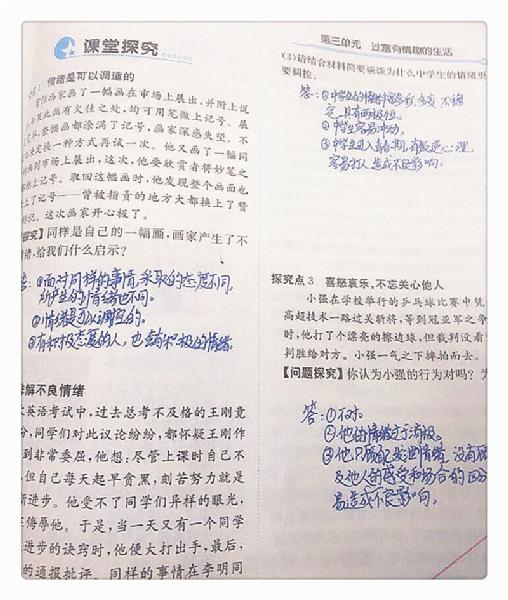 课堂探究
情绪是可以调适的
画家画了一幅画在市场上展出,并附上说
此画有欠佳之处,均可用笔做上记号。展
整幅画都涂满了记号,画家深感失望。不
决定换一种方式再试一次。他又画了一幅同
画到市场上展出,这次,他要欣赏者将妙笔之
上记号。取回这幅画时,他发现整个画面也
上了记号——曾被指责的地方大都换上了赞
标记。这次画家开心极了。
探究】同样是自己的一幅画,画家产生了不
绪,给我们什么启示?
答:①面对同样的事情,采取的态度不同,
所产生的情绪也不同。
②情绪是可以调控的。
③有积极态度的人,也会有积极的情绪。
解不良情绪
英语考试中,过去总考不及格的王刚竟
分,同学们对此议论纷纷,都怀疑王刚作
到非常委屈,他想:尽管上课时自己不
但自己每天起早贪黑,刻苦努力就是
断进步。他受不了同学们异样的眼光,
侮辱他。于是,当一天又有一个同学
进步的诀窍时,他便大打出手,最后,
的通报批评。同样的事情在李明同
第三单元 过富有情趣的生活
(3)请结合材料简要谈谈为什么中学生的情绪更
要调控。
答:①中学生的情绪丰富多变 不稳
定,具有两极性。
②中学生容易冲动。
③中学生进入青春期,有叛逆心理,
容易打人 造成不良影响。
探究点3 喜怒哀乐,不忘关心他人
小强在学校举行的乒乓球比赛中凭
高超技术一路过关斩将,等到冠亚军之争
时,他打了个漂亮的擦边球,但裁判没看
判胜给对方。小强一气之下摔拍而去。
【问题探究】你认为小强的行为对吗?为
答:①不对。
②他的情绪过于消极。
③他只顾自己发泄情绪,没有顾
及他人的感受和场合的区分
易造成不良影响。